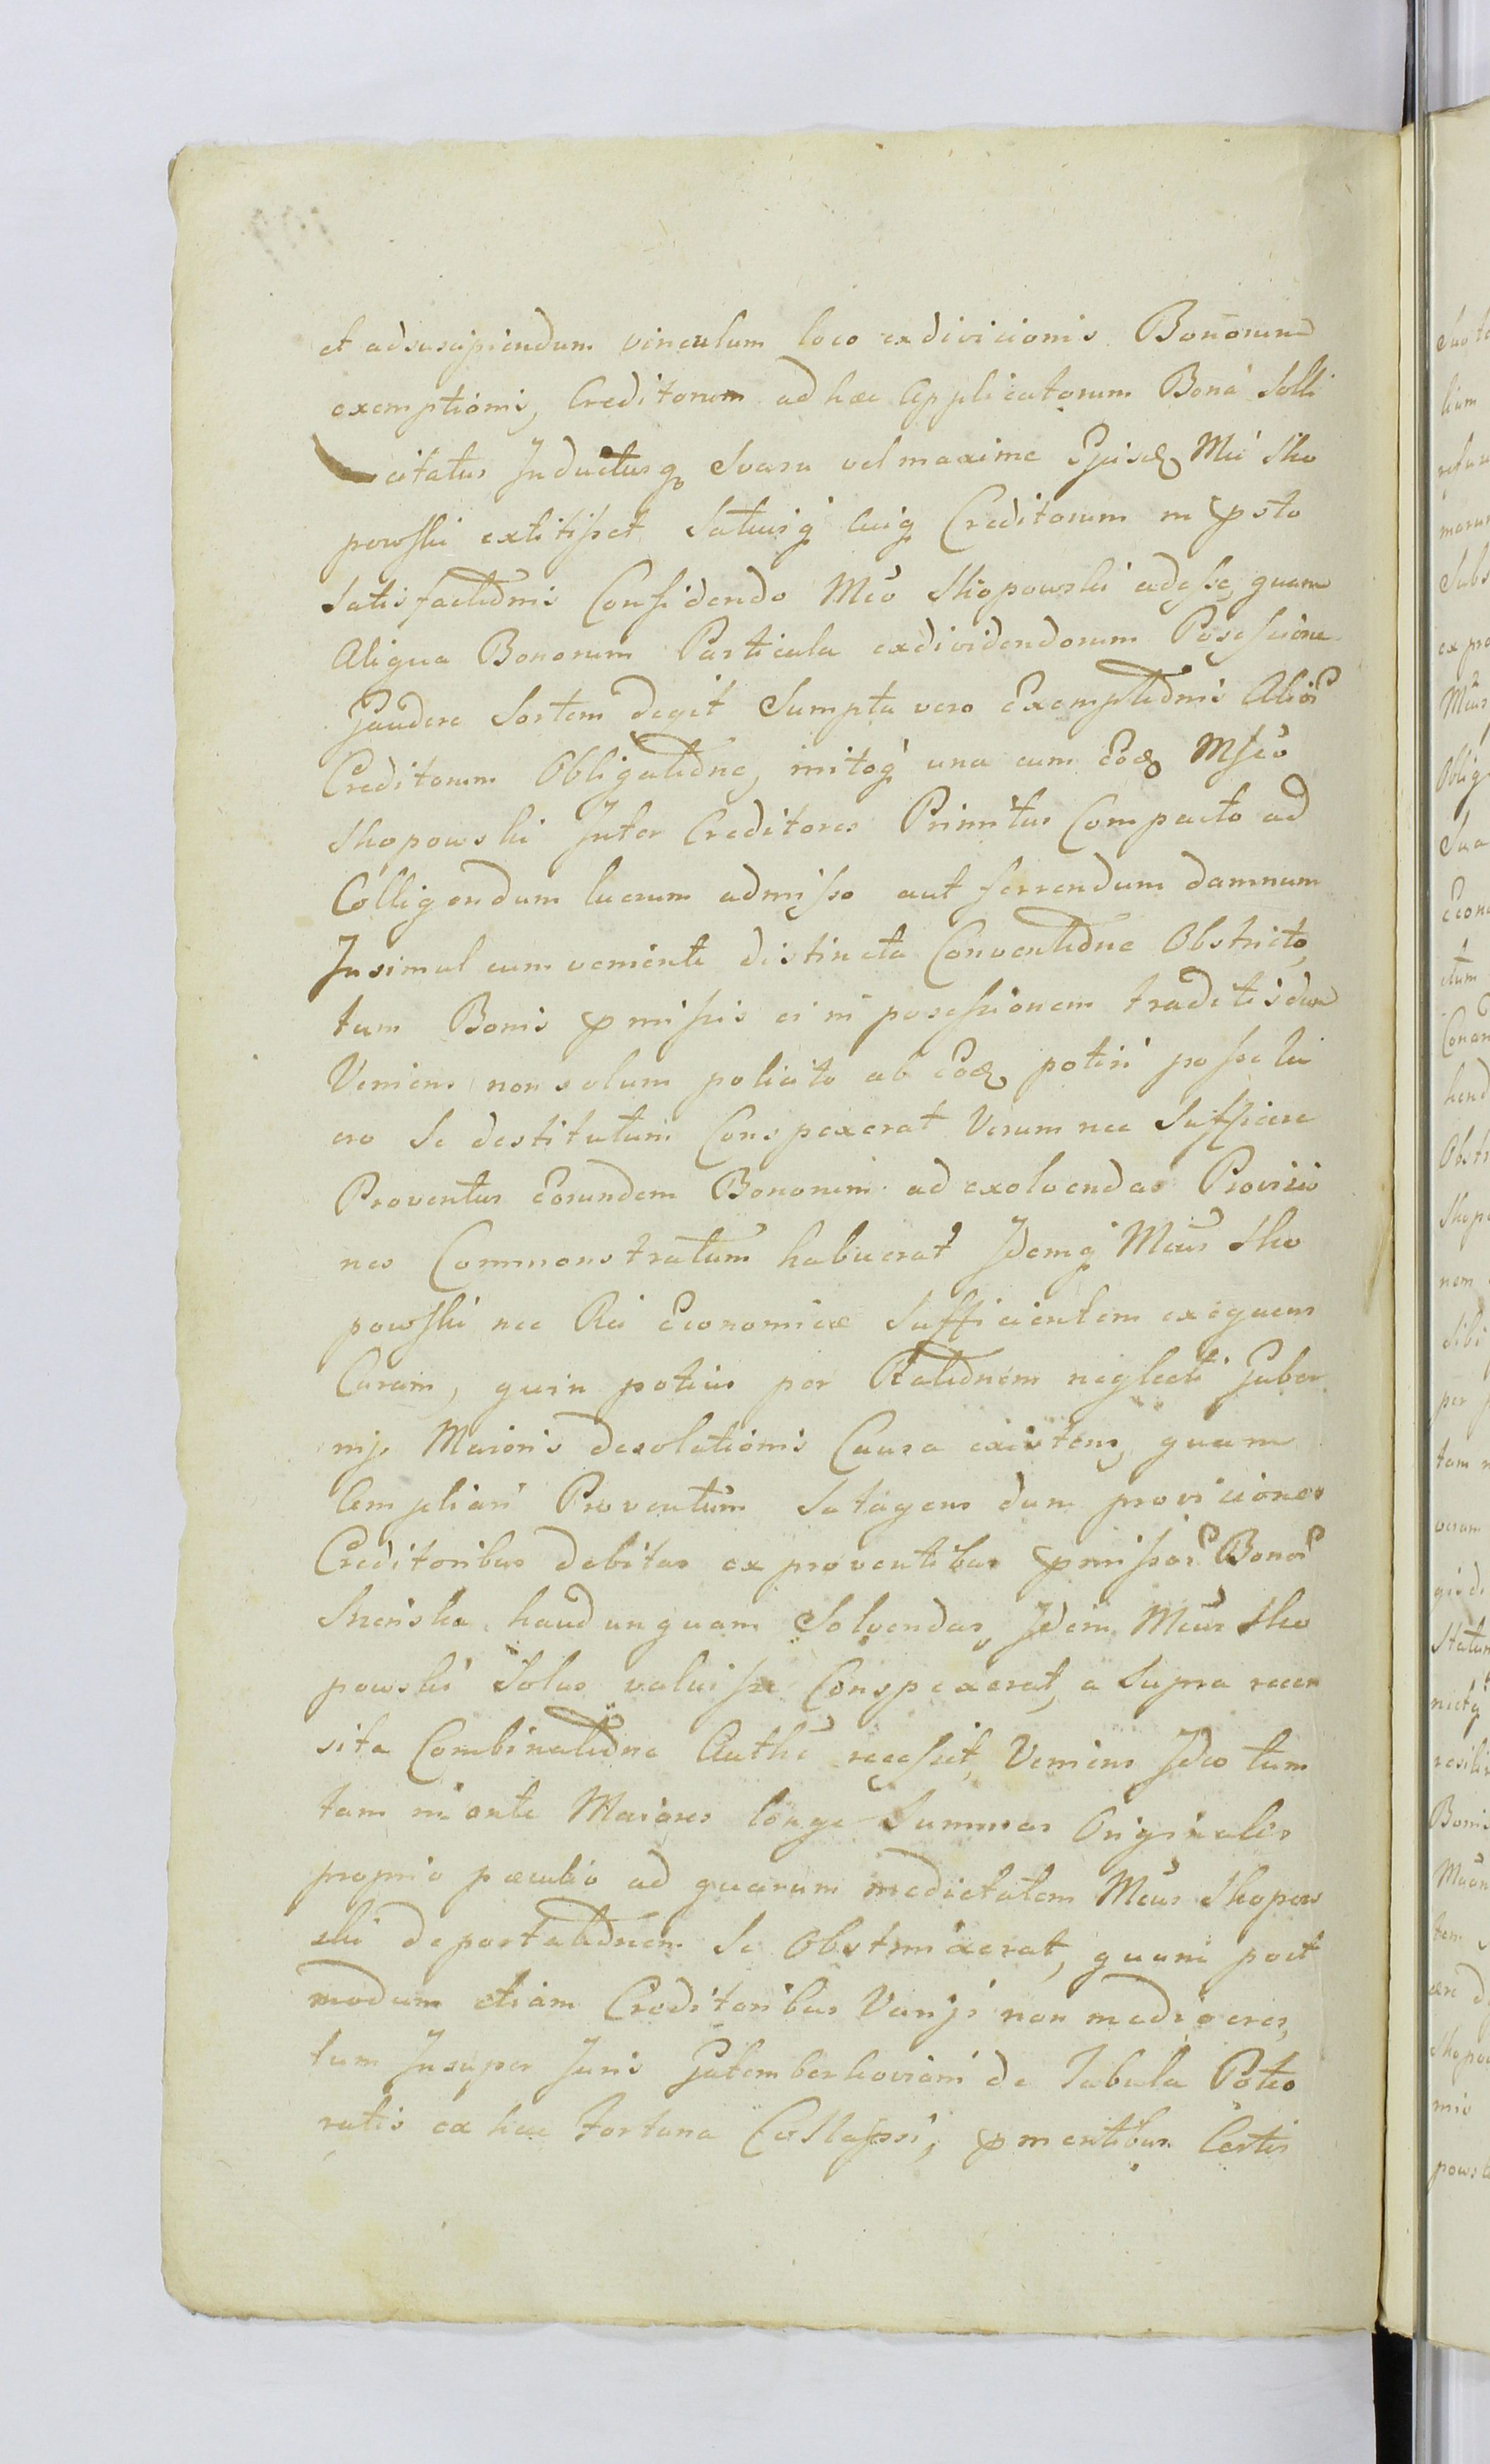 et adsuscipiendum vinculum loco exdivicionis Bonorum
exemptionis, Creditorum ad hæc Applicatorum Bona Solli
citatus Inductusq Svasu vel maxime Ejusd Mci Sko
powski extitisset Satiusq cuiq Creditorum in psto
Satisfactionis Confidendo Mco Skopowski adesse, quam
Aliqua Bonorum Particula exdividendorum Posessione
Gaudere Sortem degit Sumpta vero Exemptionis Alior
Creditorum Obligatione, initoq una cum Eod Msco
Skopowski Inter Creditores Primitus Compacto ad
Colligendum lucrum admisso aut ferrendum damnum
Insimul cum veniente distincta Conventione Obstricto,
tum Bonis pmissis ei in posessionem traditis dum
Veniens non solum poliato ab Eod potiri posse lu
cro Se destitutum Conspexerat Verum nec Sufficere
Proventus Eorundem Bonorum ad exolvendas Provisio
nes Commonstratum habuerat Idemq Mcus Sko
powski nec Rei Economicæ Sufficientem exequens
Curam, quin potius per Rationem neglecti Guber
nij Maioris desolationis Causa existens, quam
Ampliari Proventum Satagens dum provisiones
Creditoribus debitas ex proventibus pmissor Bonor
haud unquam Solvendas, Idem Mcus Sko
powski Solus valuisse Conspexerat, a Supra recen
sita Combinatione Authe recessit, Veniens Ideo tum
tam in ante Maiores longe Summas Originalis
proprio peculio ad quarum medietatem Mcus Skopow
ski deportationem Se Obstrinxerat, quam post
modum etiam Creditoribus Varijs non mediocres,
tum Insuper Juris de Tabula
ratis ex hac fortuna Collapsi, pmentibus Certis